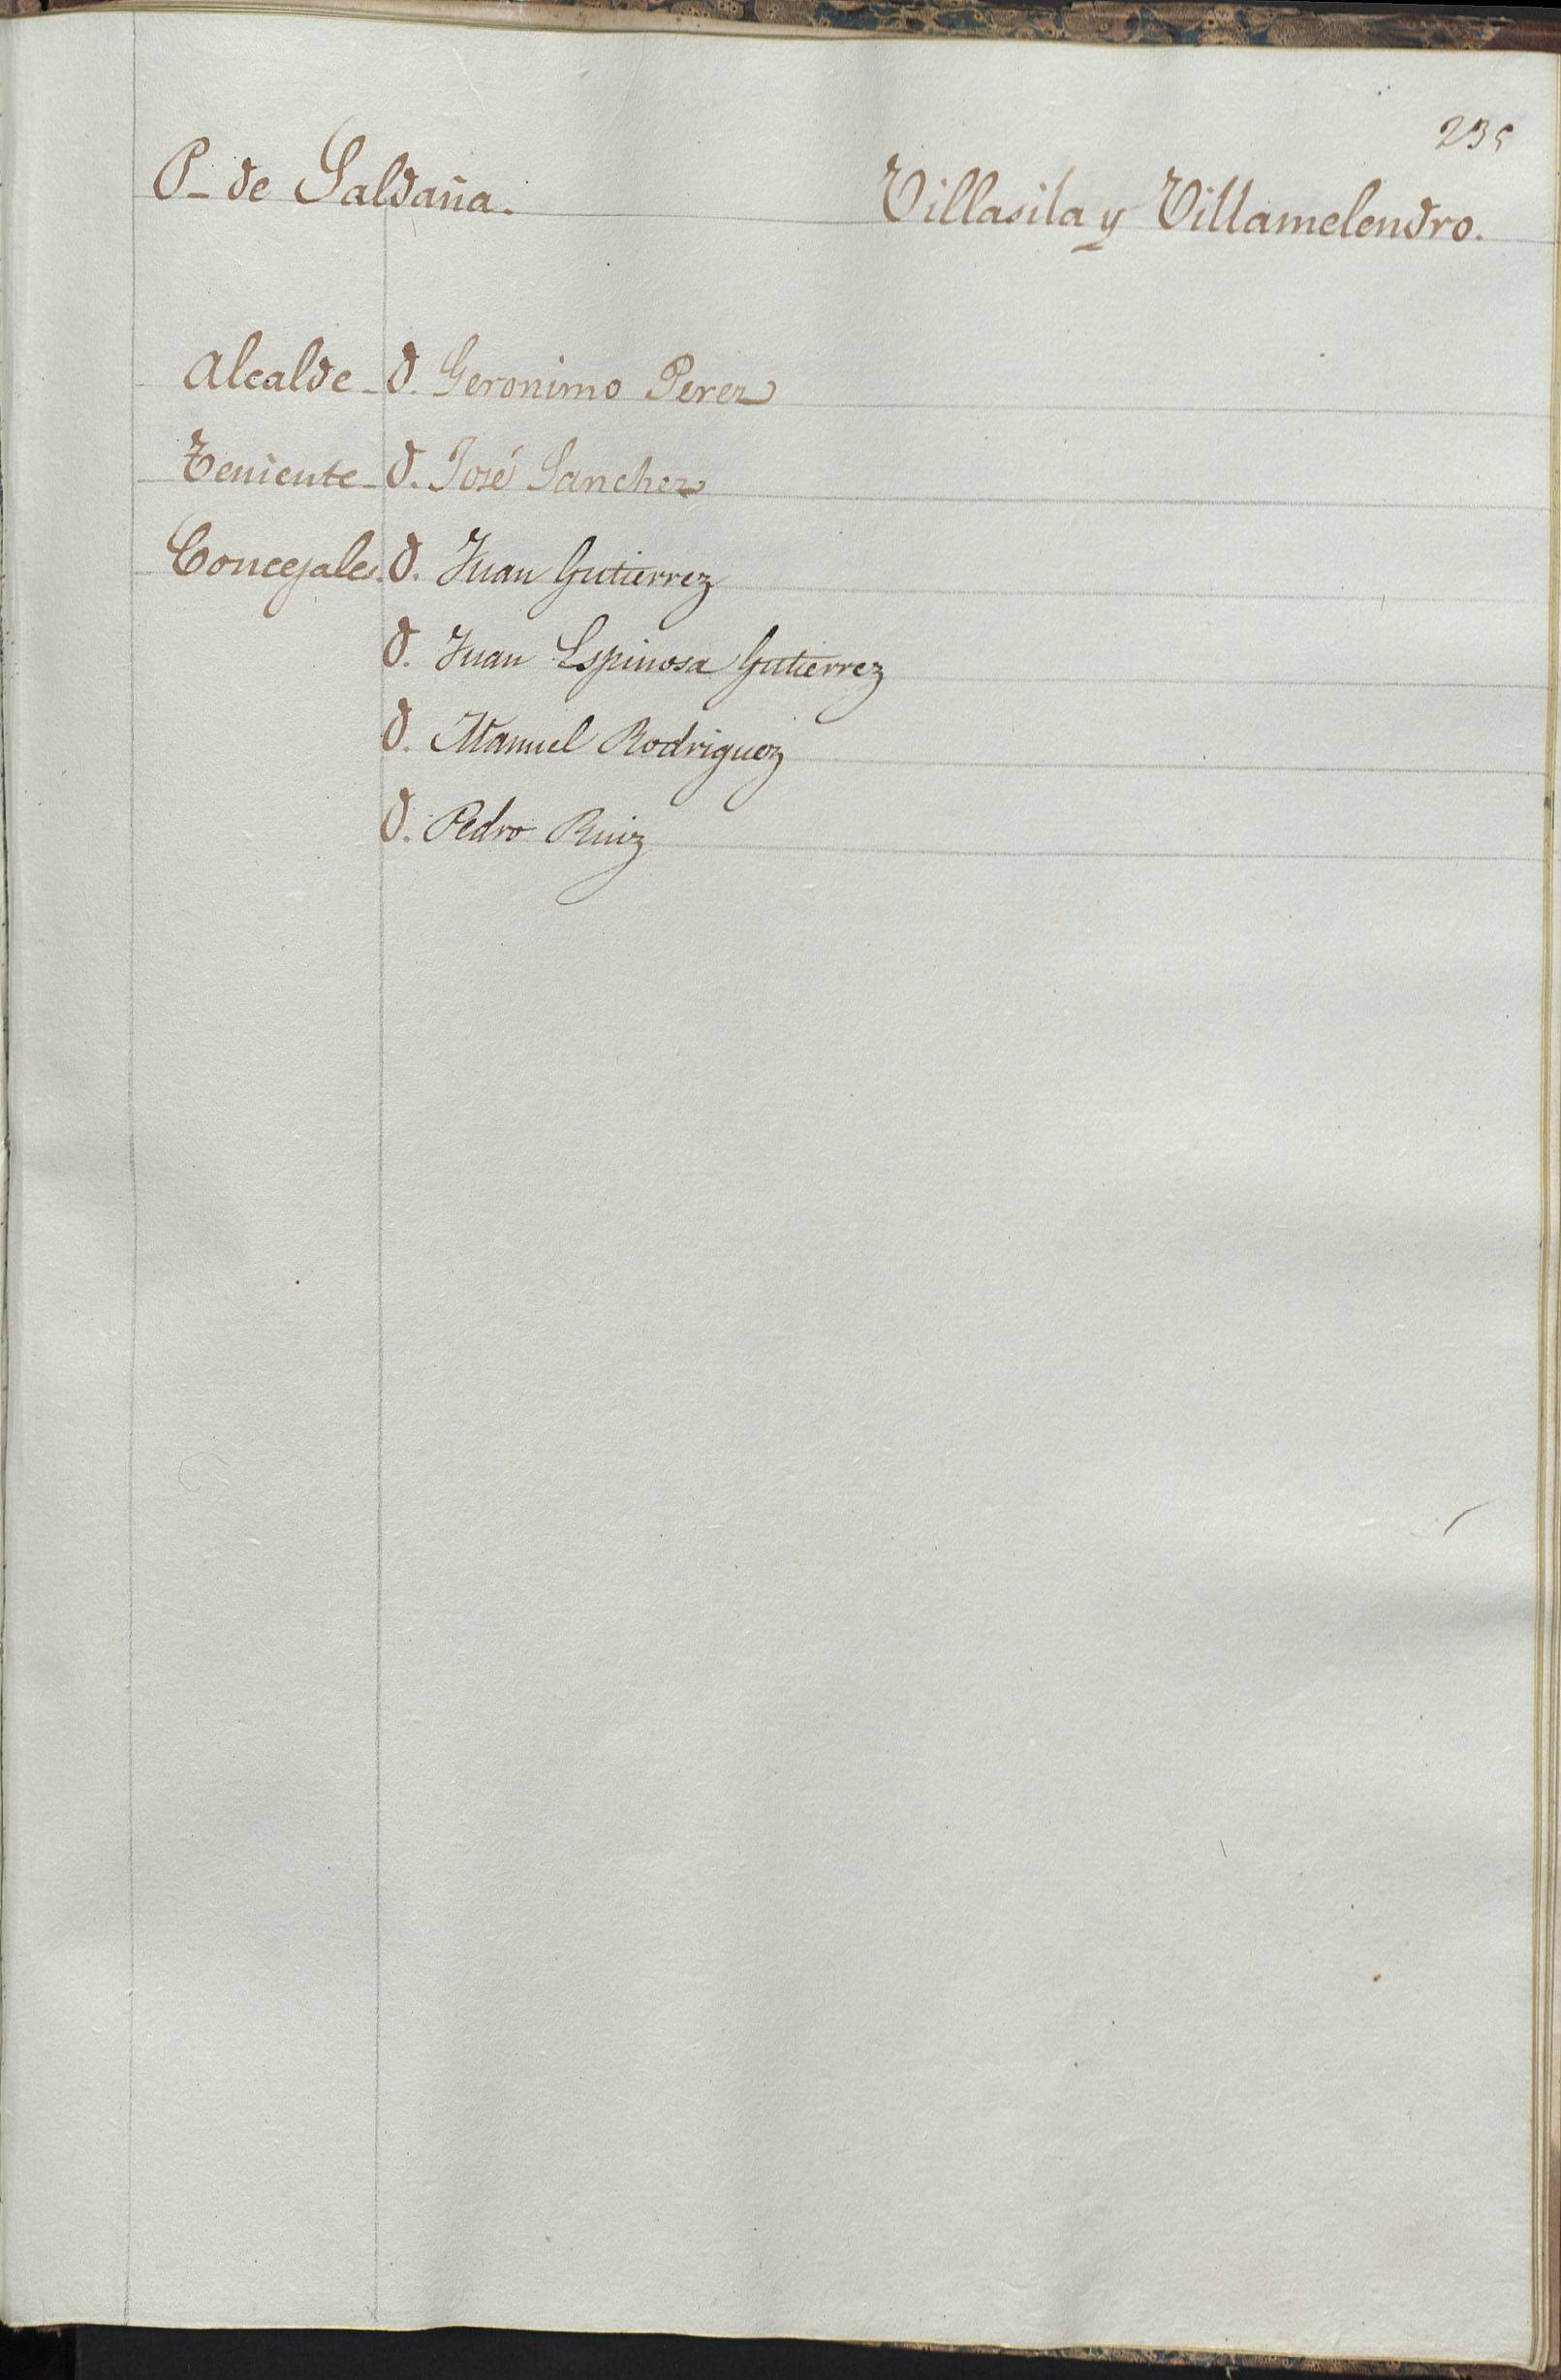 235
P- de Saldaña. Villasila y Villamelendro.
Alcalde - D. Geronimo Perez
Teniente - D. José Sanchez
Concejales. D. Juan Gutierrez
D. Juan Espinosa Gutierrez
D. Manuel Rodriguez
D. Pedro Ruiz